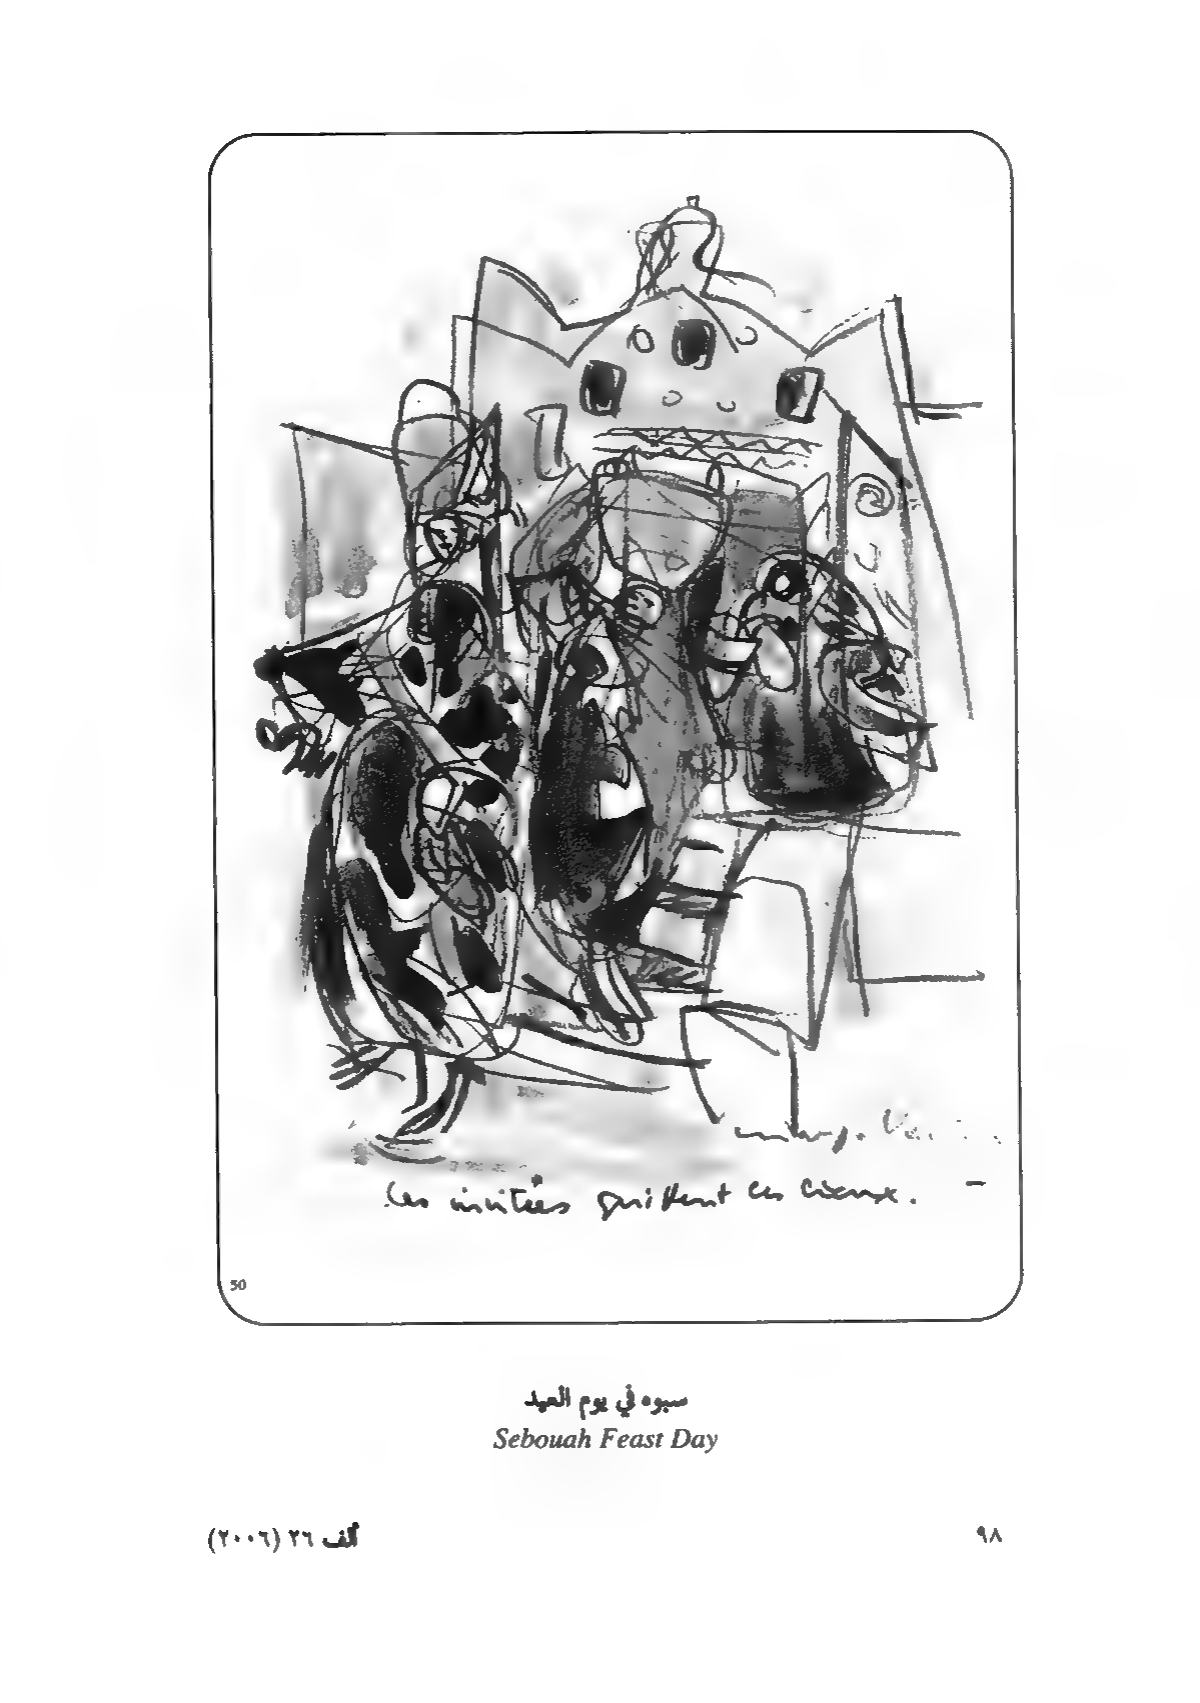 Les invitées quittent les lieux.
50
سبوه في يوم العيد
Sebouah Feast Day
ألف ٢٦ (٢٠٠٦)
٩٨